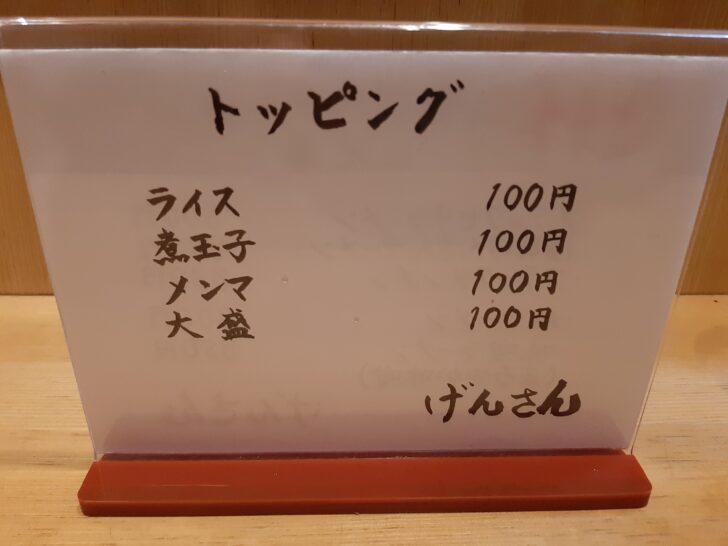 トッピング
ライス 100円
煮玉子 100円
メンマ 100円
大盛 100円
げんさん